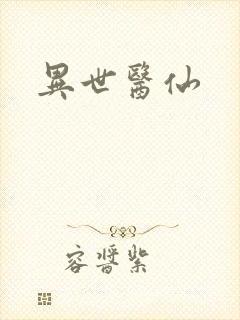 異世醫仙
容醬紫